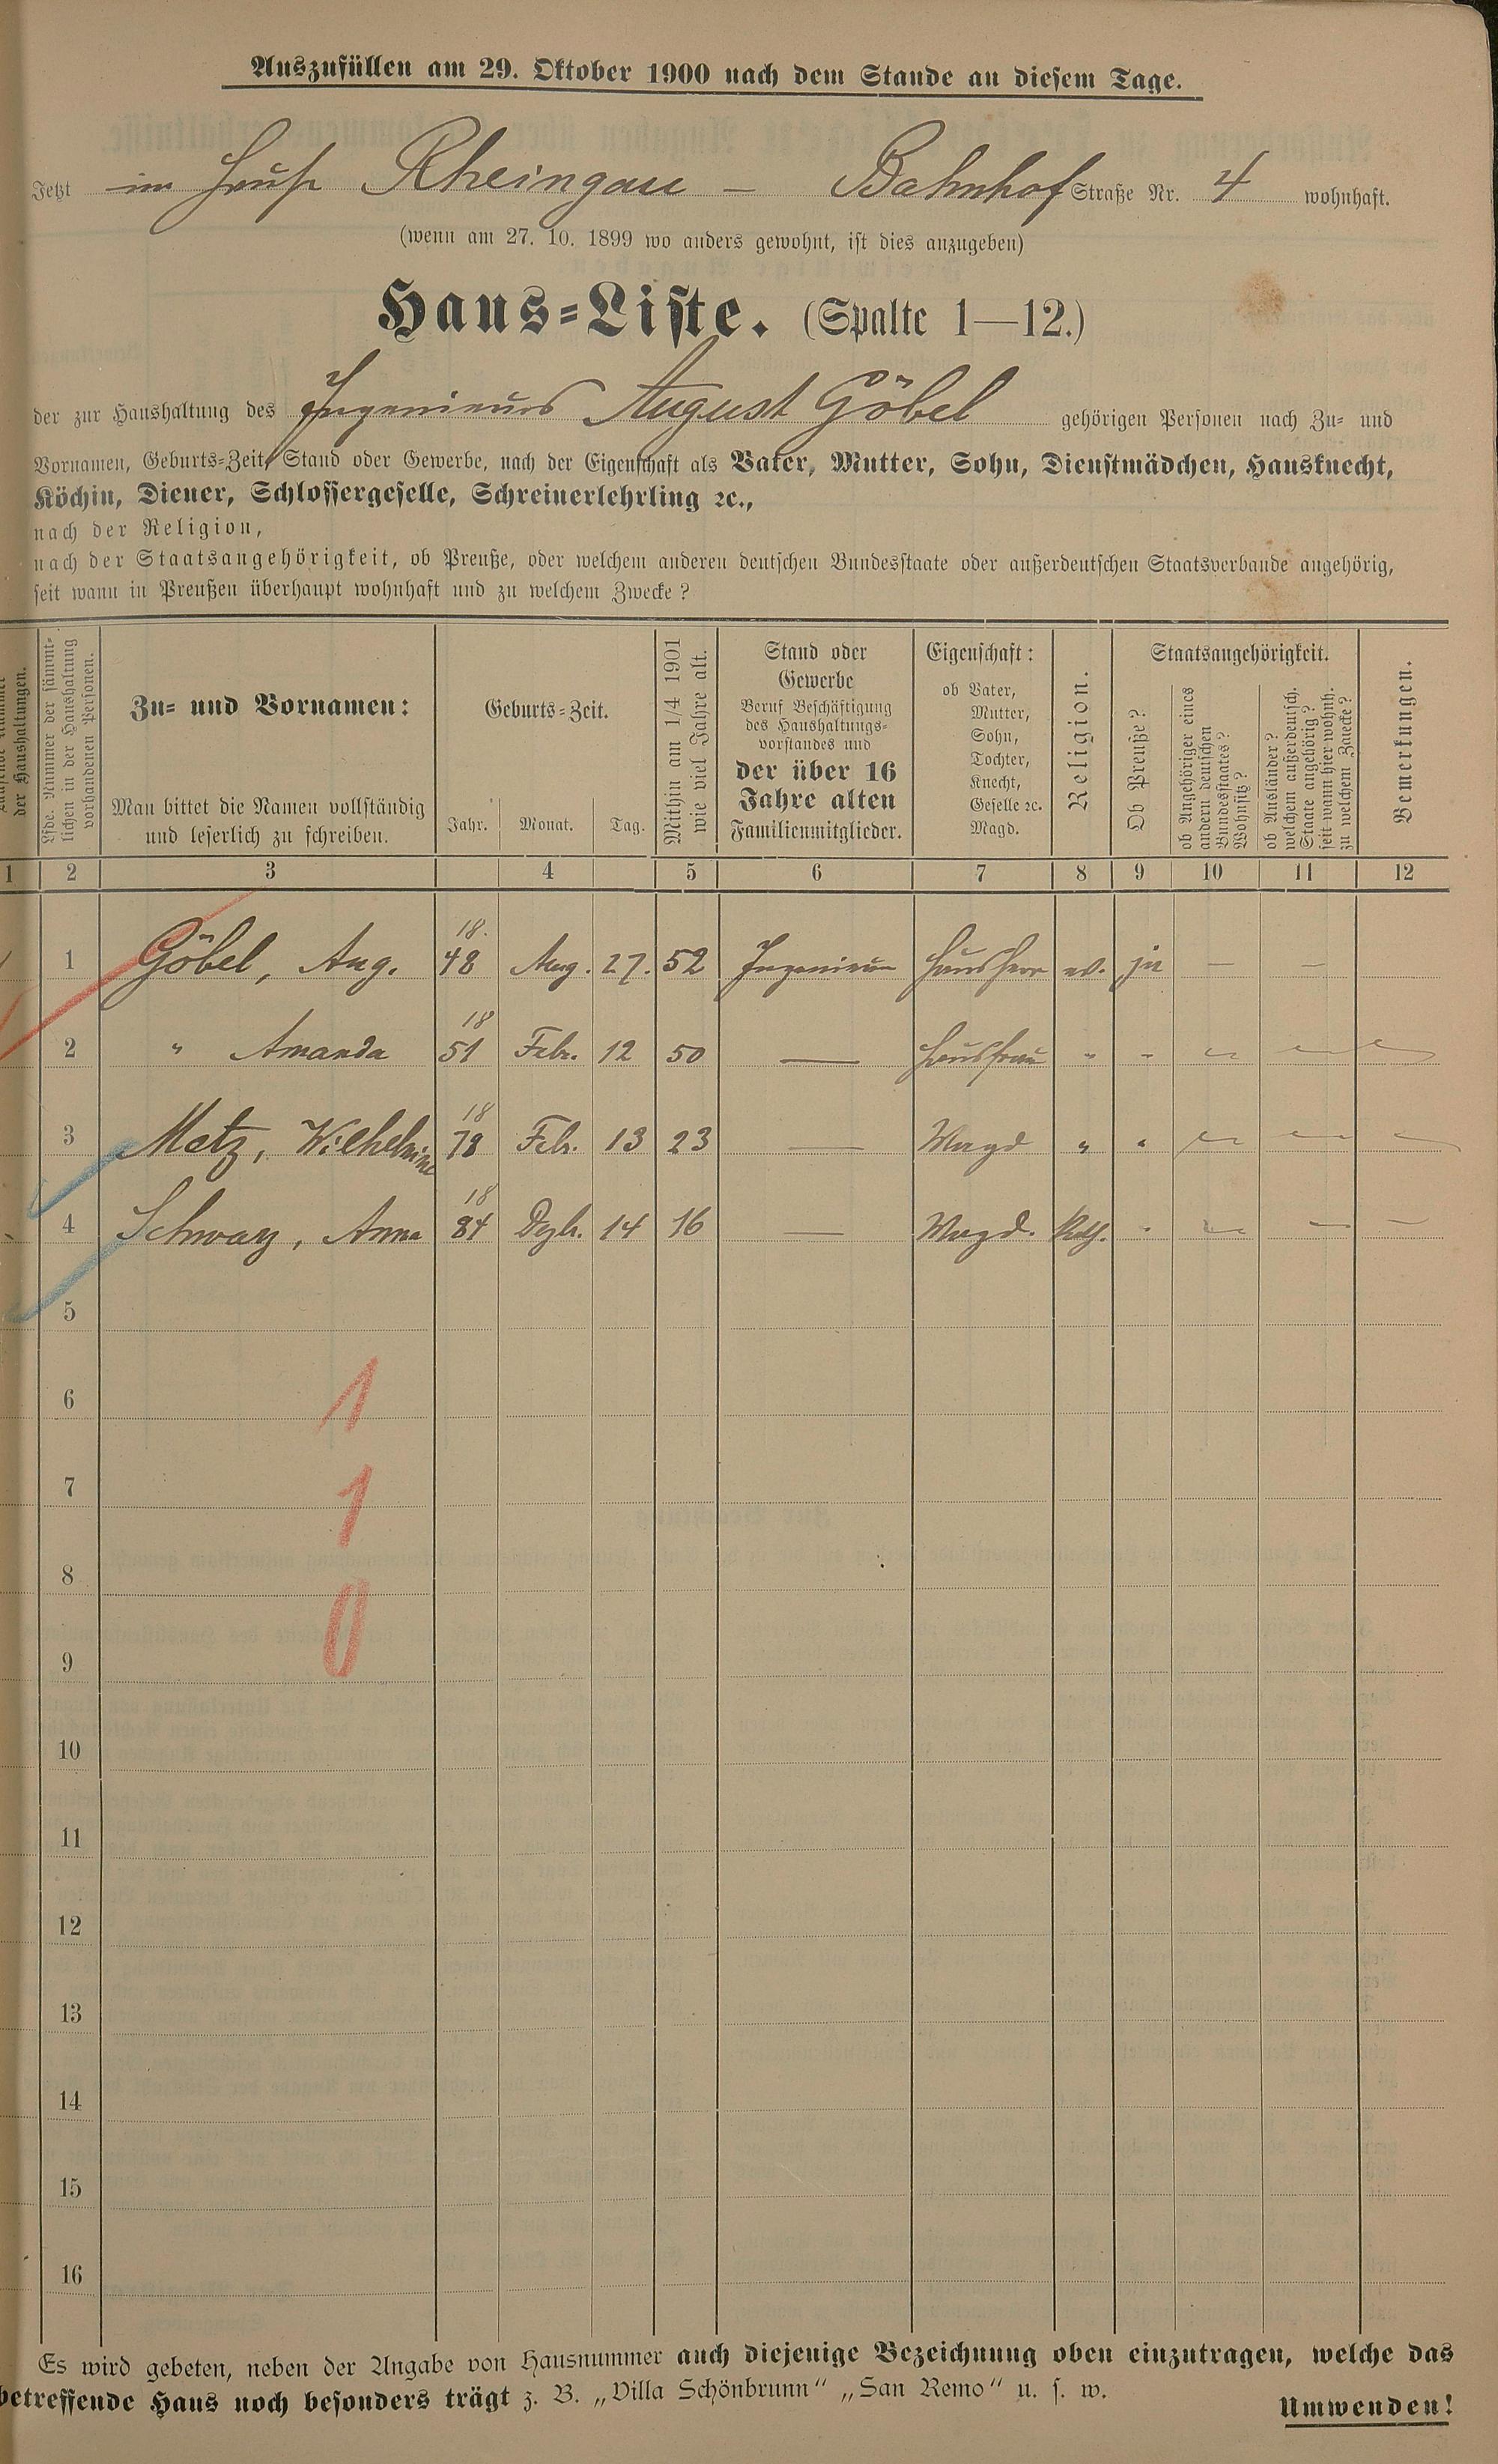 Auszufüllen am 29. Oktober 1900 nach dem Stande an diesem Tage.
Jetzt im Hause Rheingau – Bahnhof Straße Nr. 4 wohnhaft.
(wenn am 27. 10. 1899 wo anders gewohnt, ist dies anzugeben)
Haus=Liste. (Spalte 1—12.)
der zur Haushaltung des Ingenieurs August Göbel gehörigen Personen nach Zu= und
Vornamen, Geburts=Zeit, Stand oder Gewerbe, nach der Eigenschaft als Vater, Mutter, Sohn, Dienstmädchen, Hausknecht,
Köchin, Diener, Schlossergeselle, Schreinerlehrling ꝛc.,
nach der Religion,
nach der Staatsangehörigkeit, ob Preuße, oder welchem anderen deutschen Bundesstaate oder außerdeutschen Staatsverbande angehörig,
seit wann in Preußen überhaupt wohnhaft und zu welchem Zwecke?
der Haushaltungen.
Lfde. Nummer der sämmt-
lichen in der Haushaltung
vorhandenen Personen.
Zu= und Vornamen:
Man bittet die Namen vollständig
und leserlich zu schreiben.
Geburts=Zeit.
Jahr. Monat. Tag.
Mithin am 1/4 1901
wie viel Jahre alt.
Stand oder
Gewerbe
Beruf Beschäftigung
des Haushaltungs-
vorstandes und
der über 16
Jahre alten
Familienmitglieder.
Eigenschaft:
ob Vater,
Mutter,
Sohn,
Tochter,
Knecht,
Geselle ꝛc.
Magd.
Religion.
Staatsangehörigkeit.
Ob Preuße?
ob Angehöriger eines
andern deutschen
Bundesstaates?
Wohnsitz?
ob Ausländer?
welchem außerdeutsch.
Staate angehörig?
seit wann hier wohnh.
zu welchem Zwecke?
Bemerkungen.
1 2 3 4 5 6 7 8 9 10 11 12
1 Göbel, Aug. 1848 Aug. 27. 52 Ingenieur Hausherr ev. ja — —
2 " Amanda 1851 Febr. 12 50 — Hausfrau " " " " "
3 Metz, Wilhelmine 1878 Febr. 13 23 — Magd " " " " "
4 Schwarz, Anna 1884 Dezbr. 14 16 — Magd. Kath. " " " "
5
6 1
7 1
8
9 0
10
11
12
13
14
15
16
Es wird gebeten, neben der Angabe von Hausnummer auch diejenige Bezeichnung oben einzutragen, welche das
betreffende Haus noch besonders trägt z. B. „Villa Schönbrunn“ „San Remo“ u. s. w.
Umwenden!